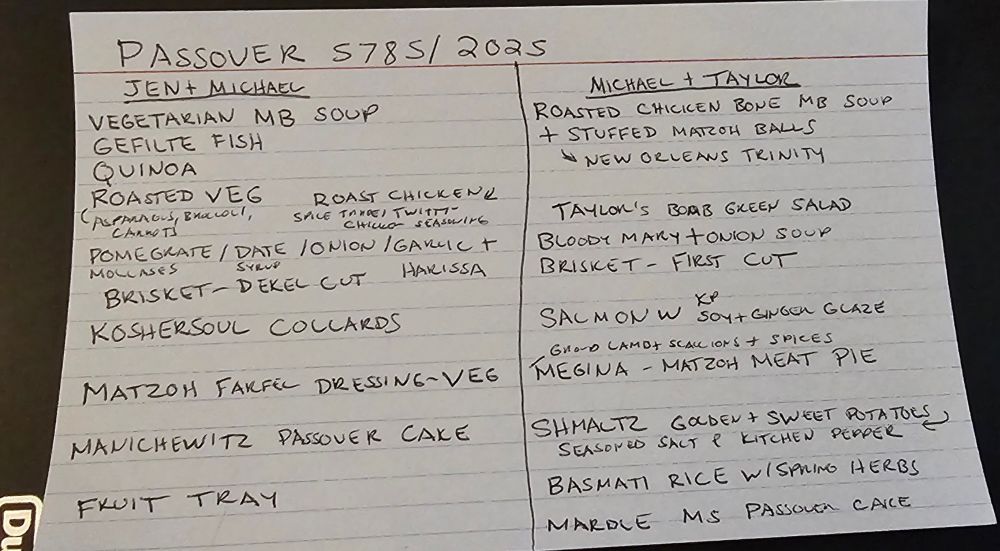 PASSOVER 5785/2025
JEN + MICHAEL
VEGETARIAN MB SOUP
GEFILTE FISH
QUINOA
ROASTED VEG ROAST CHICKEN
(ASPARAGUS, BROCCOLI, CARROTS
SPICE CHICKEN SEASONING
POMEGRATE / DATE / ONION / GARLIC +
MOLLASES SYRUP HARISSA
BRISKET - DEKEL CUT
KOSHERSOUL COLLARDS
MATZOH FARFEL DRESSING - VEG
MANICHEWITZ PASSOVER CAKE
FRUIT TRAY
MICHAEL + TAYLOR
ROASTED CHICKEN BONE MB SOUP
+ STUFFED MATZOH BALLS
↳ NEW ORLEANS TRINITY
TAYLOR'S BOMB GREEN SALAD
BLOODY MARY + ONION SOUP
BRISKET - FIRST CUT
SALMON W KP SOY + GINGER GLAZE
GROUND LAMB + SCALLIONS + SPICES
MEGINA - MATZOH MEAT PIE
SHMALTZ GOLDEN + SWEET POTATOES
SEASONED SALT & KITCHEN PEPPER
BASMATI RICE W/SPRING HERBS
MARBLE MS PASSOVER CAKE
Du